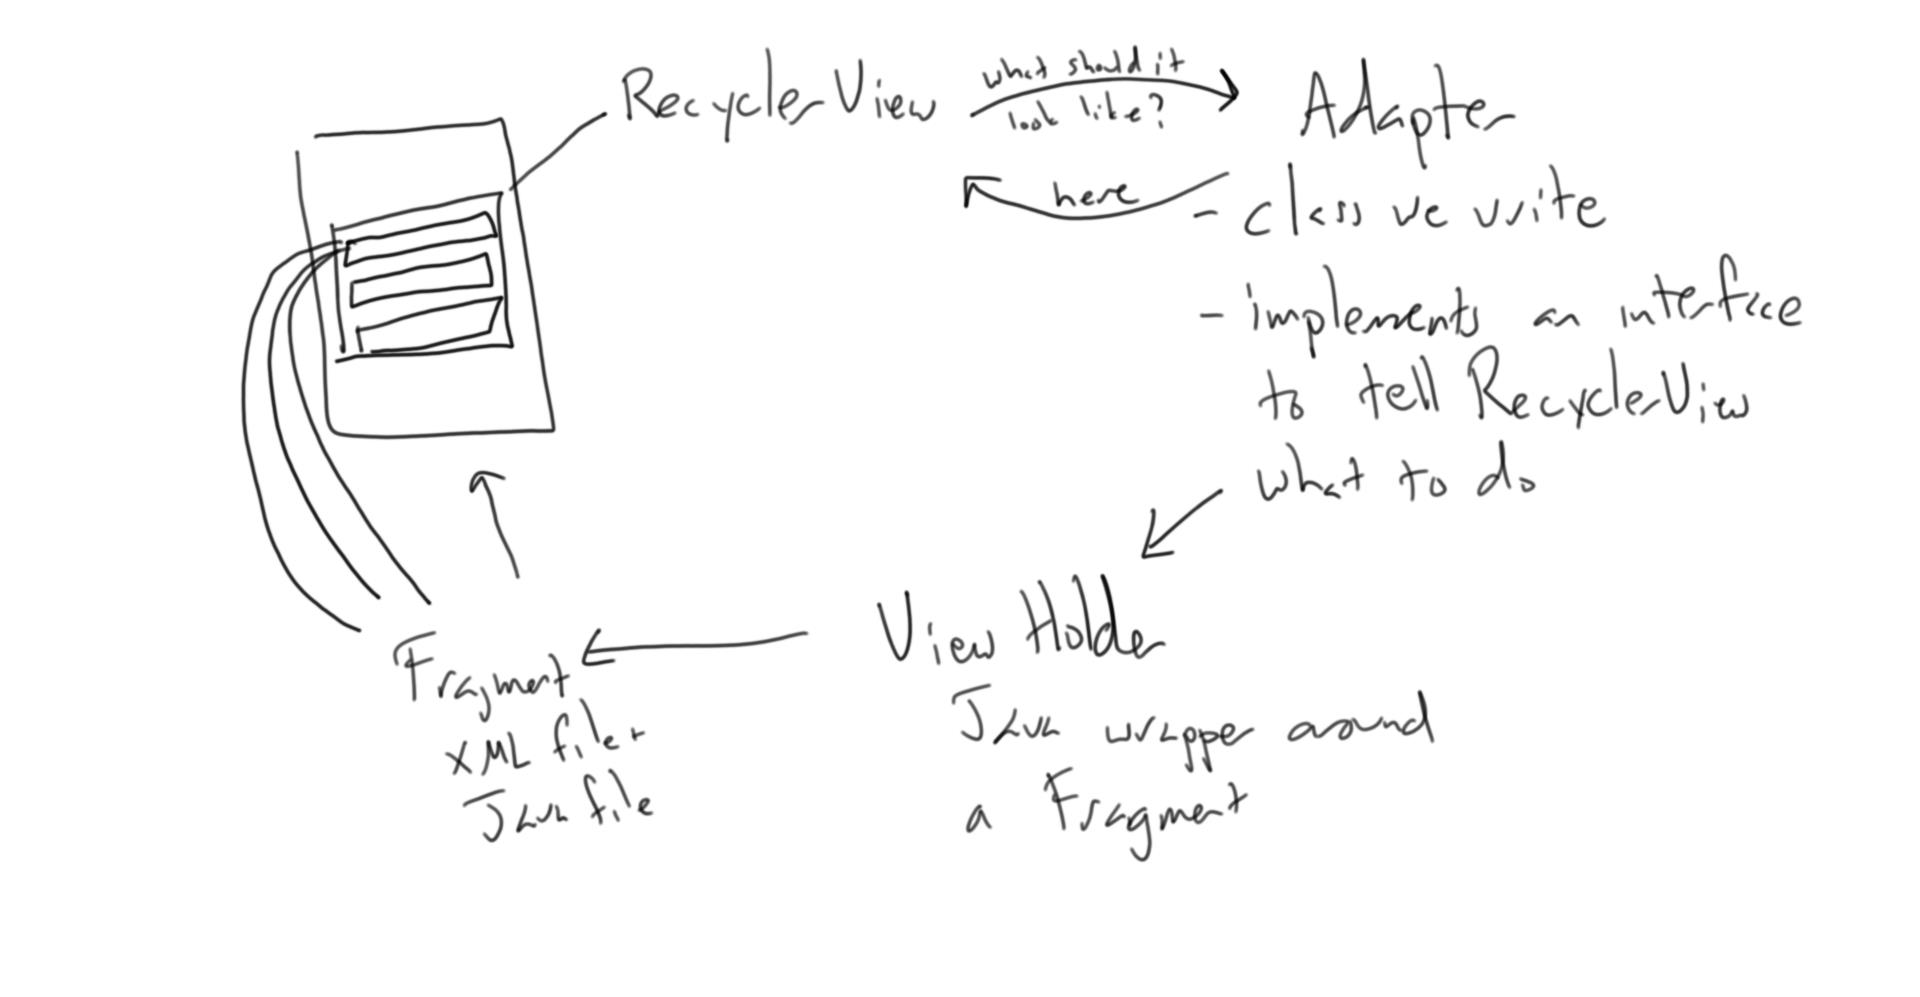 RecyclerView
what should it
look like?
here
Adapter
- class we write
- implements an interface
to tell RecyclerView
what to do
View Holder
Java wrapper around
a Fragment
Fragment
XML file +
Java file